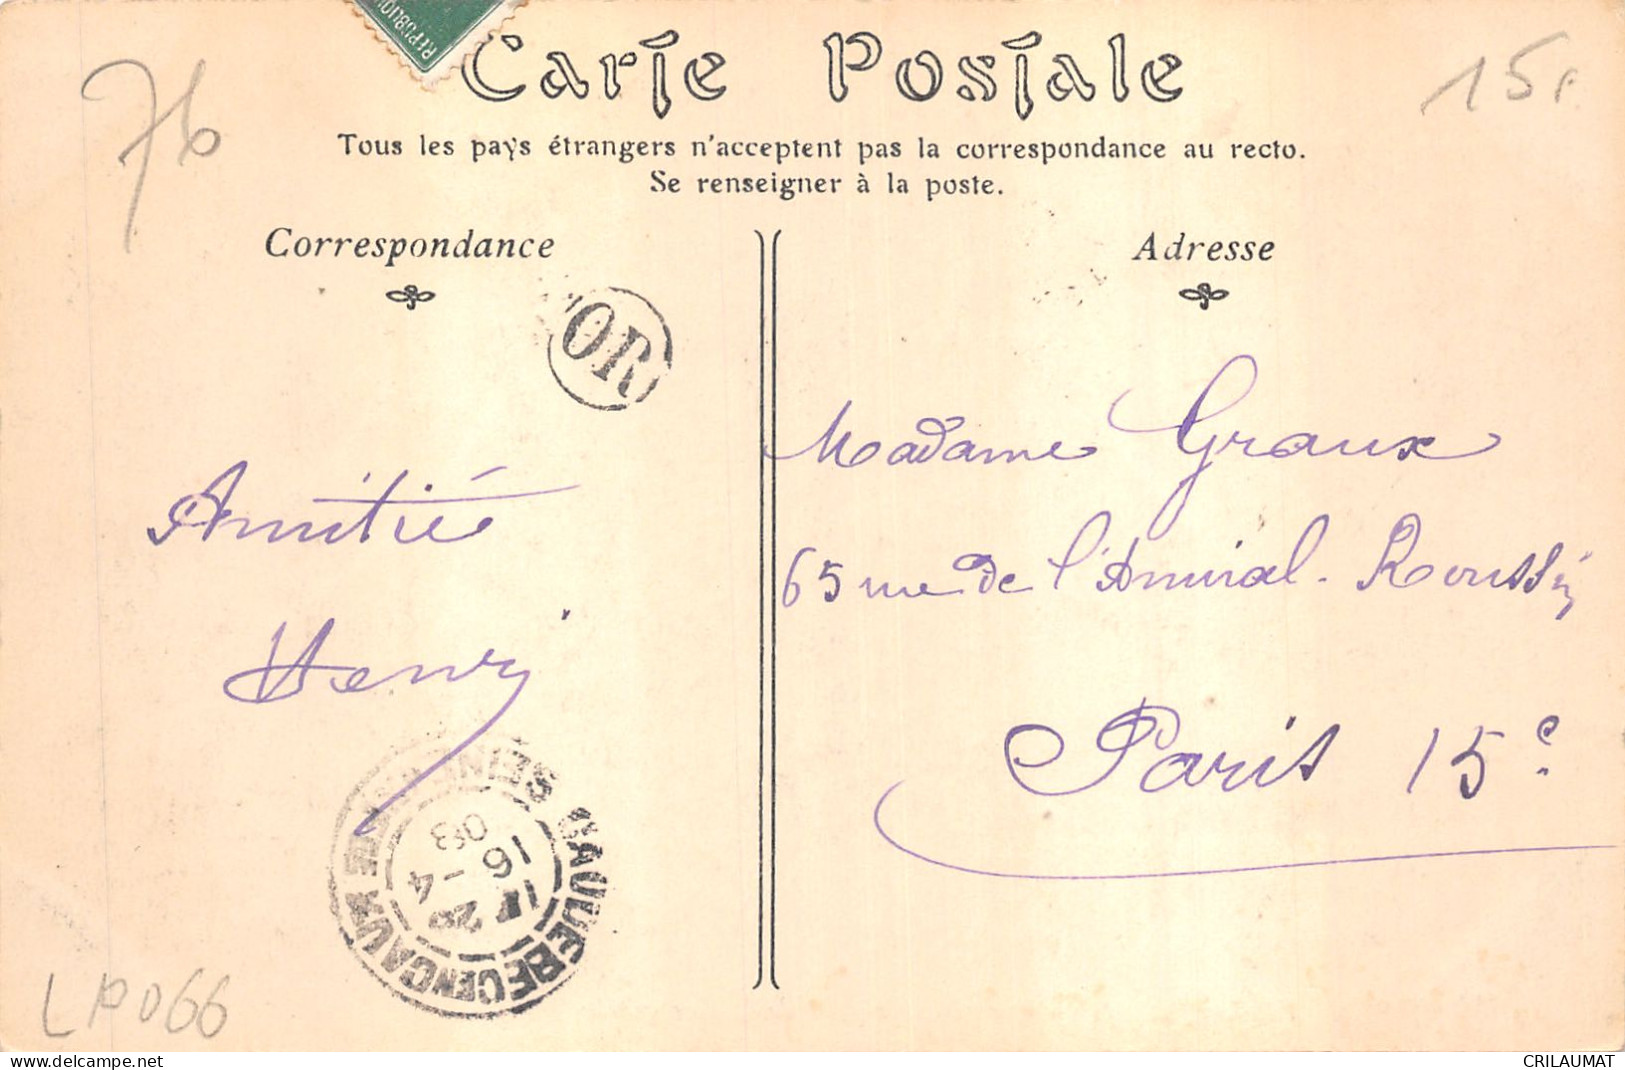 REPUBLIQUE
Carte Postale
76
15e
Tous les pays étrangers n'acceptent pas la correspondance au recto.
Se renseigner à la poste.
Correspondance
Adresse
OR
Amitié
Henri
Madame Graux
65 rue de l'Amiral. Roussin
Paris 15e.
CAUDEBEC EN CAUX
SEINE
16 - 4
08
LP066
www.delcampe.net
CRILAUMAT